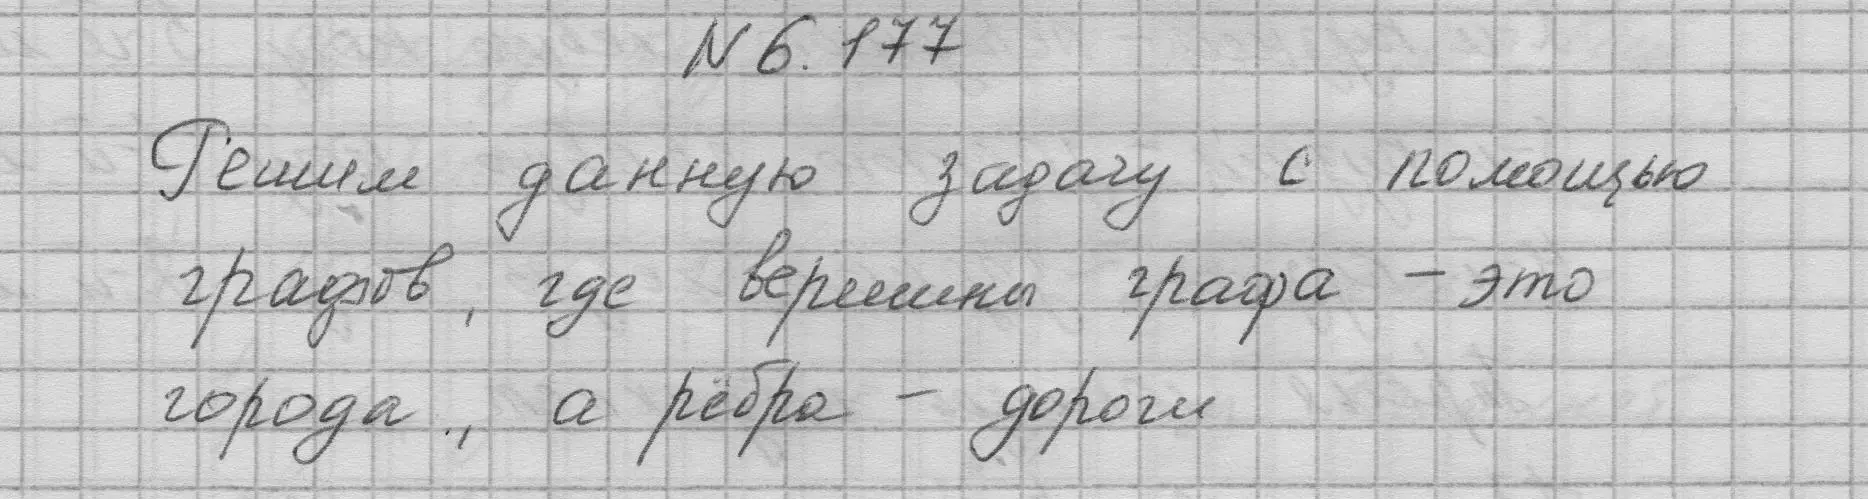 N 6.177
Решим данную задачу с помощью
графов, где вершины графа - это
города, а рёбра - дороги